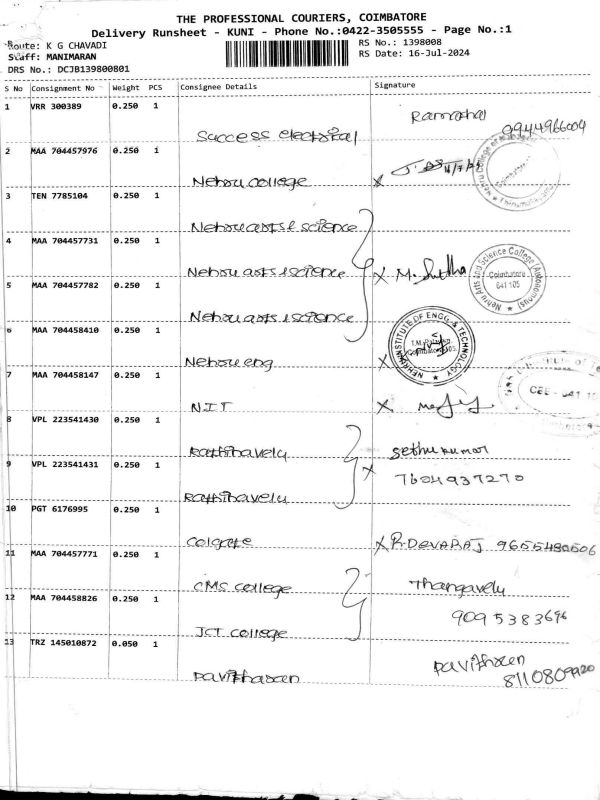 THE PROFESSIONAL COURIERS, COIMBATORE
Delivery Runsheet - KUNI - Phone No.:0422-3505555 - Page No.:1
Route: K G CHAVADI RS No.: 1398008
Staff: MANIMARAN RS Date: 16-Jul-2024
DRS No.: DCJB139800801
S No Consignment No Weight PCS Consignee Details Signature
1 VRR 300389 0.250 1
Success electrical 9944966004
2 MAA 704457976 0.250 1
Nehru college
3 TEN 7785104 0.250 1
Nehru arts & science
4 MAA 704457731 0.250 1
Nehru arts & science
5 MAA 704457782 0.250 1
Nehru arts & science
Nehru Arts and Science College (Autonomous)
Coimbatore
641 105
6 MAA 704458410 0.250 1
Nehru eng
7 MAA 704458147 0.250 1
N.I.T
8 VPL 223541430 0.250 1
Rathinavelu Sethukumar
9 VPL 223541431 0.250 1
Rathinavelu 7604937270
10 PGT 6176995 0.250 1
Colgate R. DEVARAJ 9655480506
11 MAA 704457771 0.250 1
CMS college Thangavelu
12 MAA 704458826 0.250 1
JCT college 9095383696
13 TRZ 145010872 0.050 1
Pavitharan Pavithran
8110809920